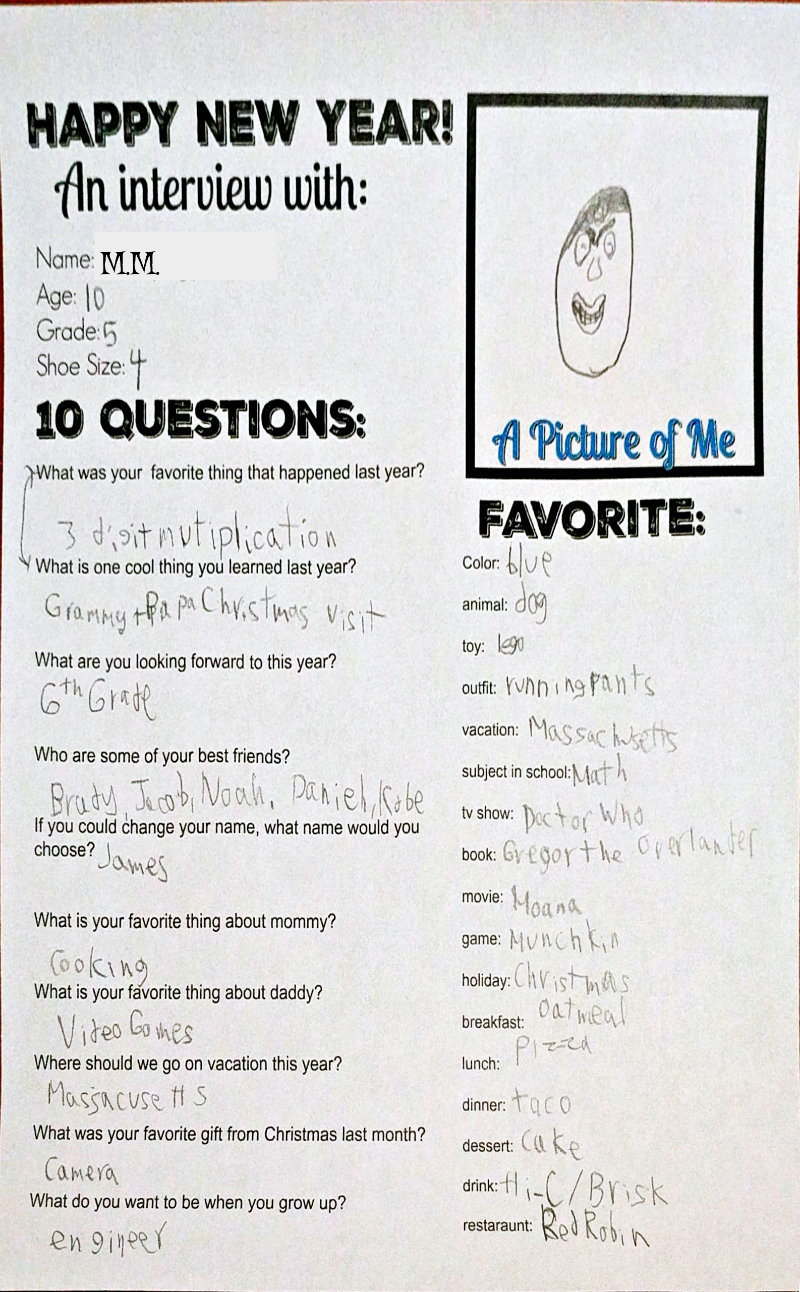 HAPPY NEW YEAR!
An interview with:
Name: M.M.
Age: 10
Grade: 5
Shoe Size: 4
10 QUESTIONS:
What was your favorite thing that happened last year?
3 digit mutiplication
What is one cool thing you learned last year?
Grammy + Papa Christmas visit
What are you looking forward to this year?
6th Grade
Who are some of your best friends?
Brady, Jacob, Noah, Daniel, Kobe
If you could change your name, what name would you
choose? James
What is your favorite thing about mommy?
Cooking
What is your favorite thing about daddy?
Video Games
Where should we go on vacation this year?
Massjacusetts
What was your favorite gift from Christmas last month?
Camera
What do you want to be when you grow up?
engineer
A Picture of Me
FAVORITE:
Color: blue
animal: dog
toy: lego
outfit: running pants
vacation: Massachusetts
subject in school: Math
tv show: Doctor Who
book: Gregor the Overlander
movie: Moana
game: Munchkin
holiday: Christmas
breakfast: Oatmeal
lunch: Pizza
dinner: taco
dessert: Cake
drink: Hi-C/Brisk
restaraunt: Red Robin